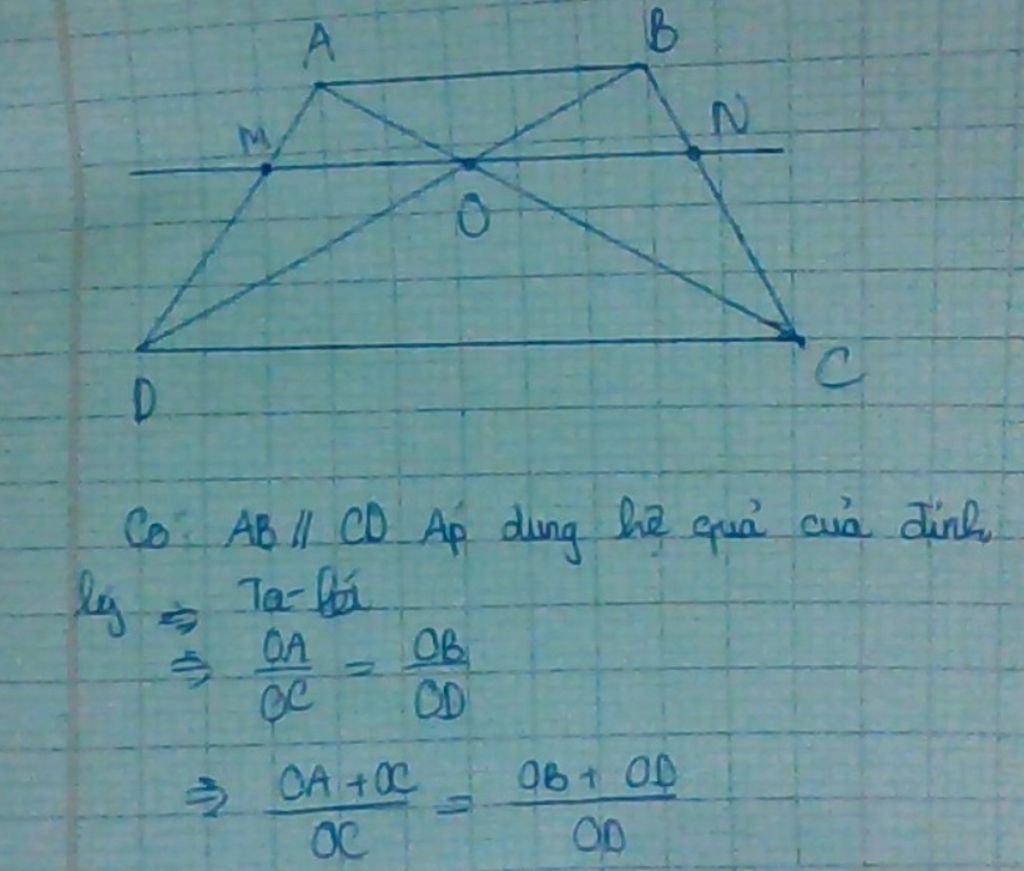 A B
M N
O
D C
Co: AB // CD Ap dung hệ quả của định
lý => Ta-lét
=> OA/OC = OB/OD
=> OA + OC/OC = OB + OD/OD